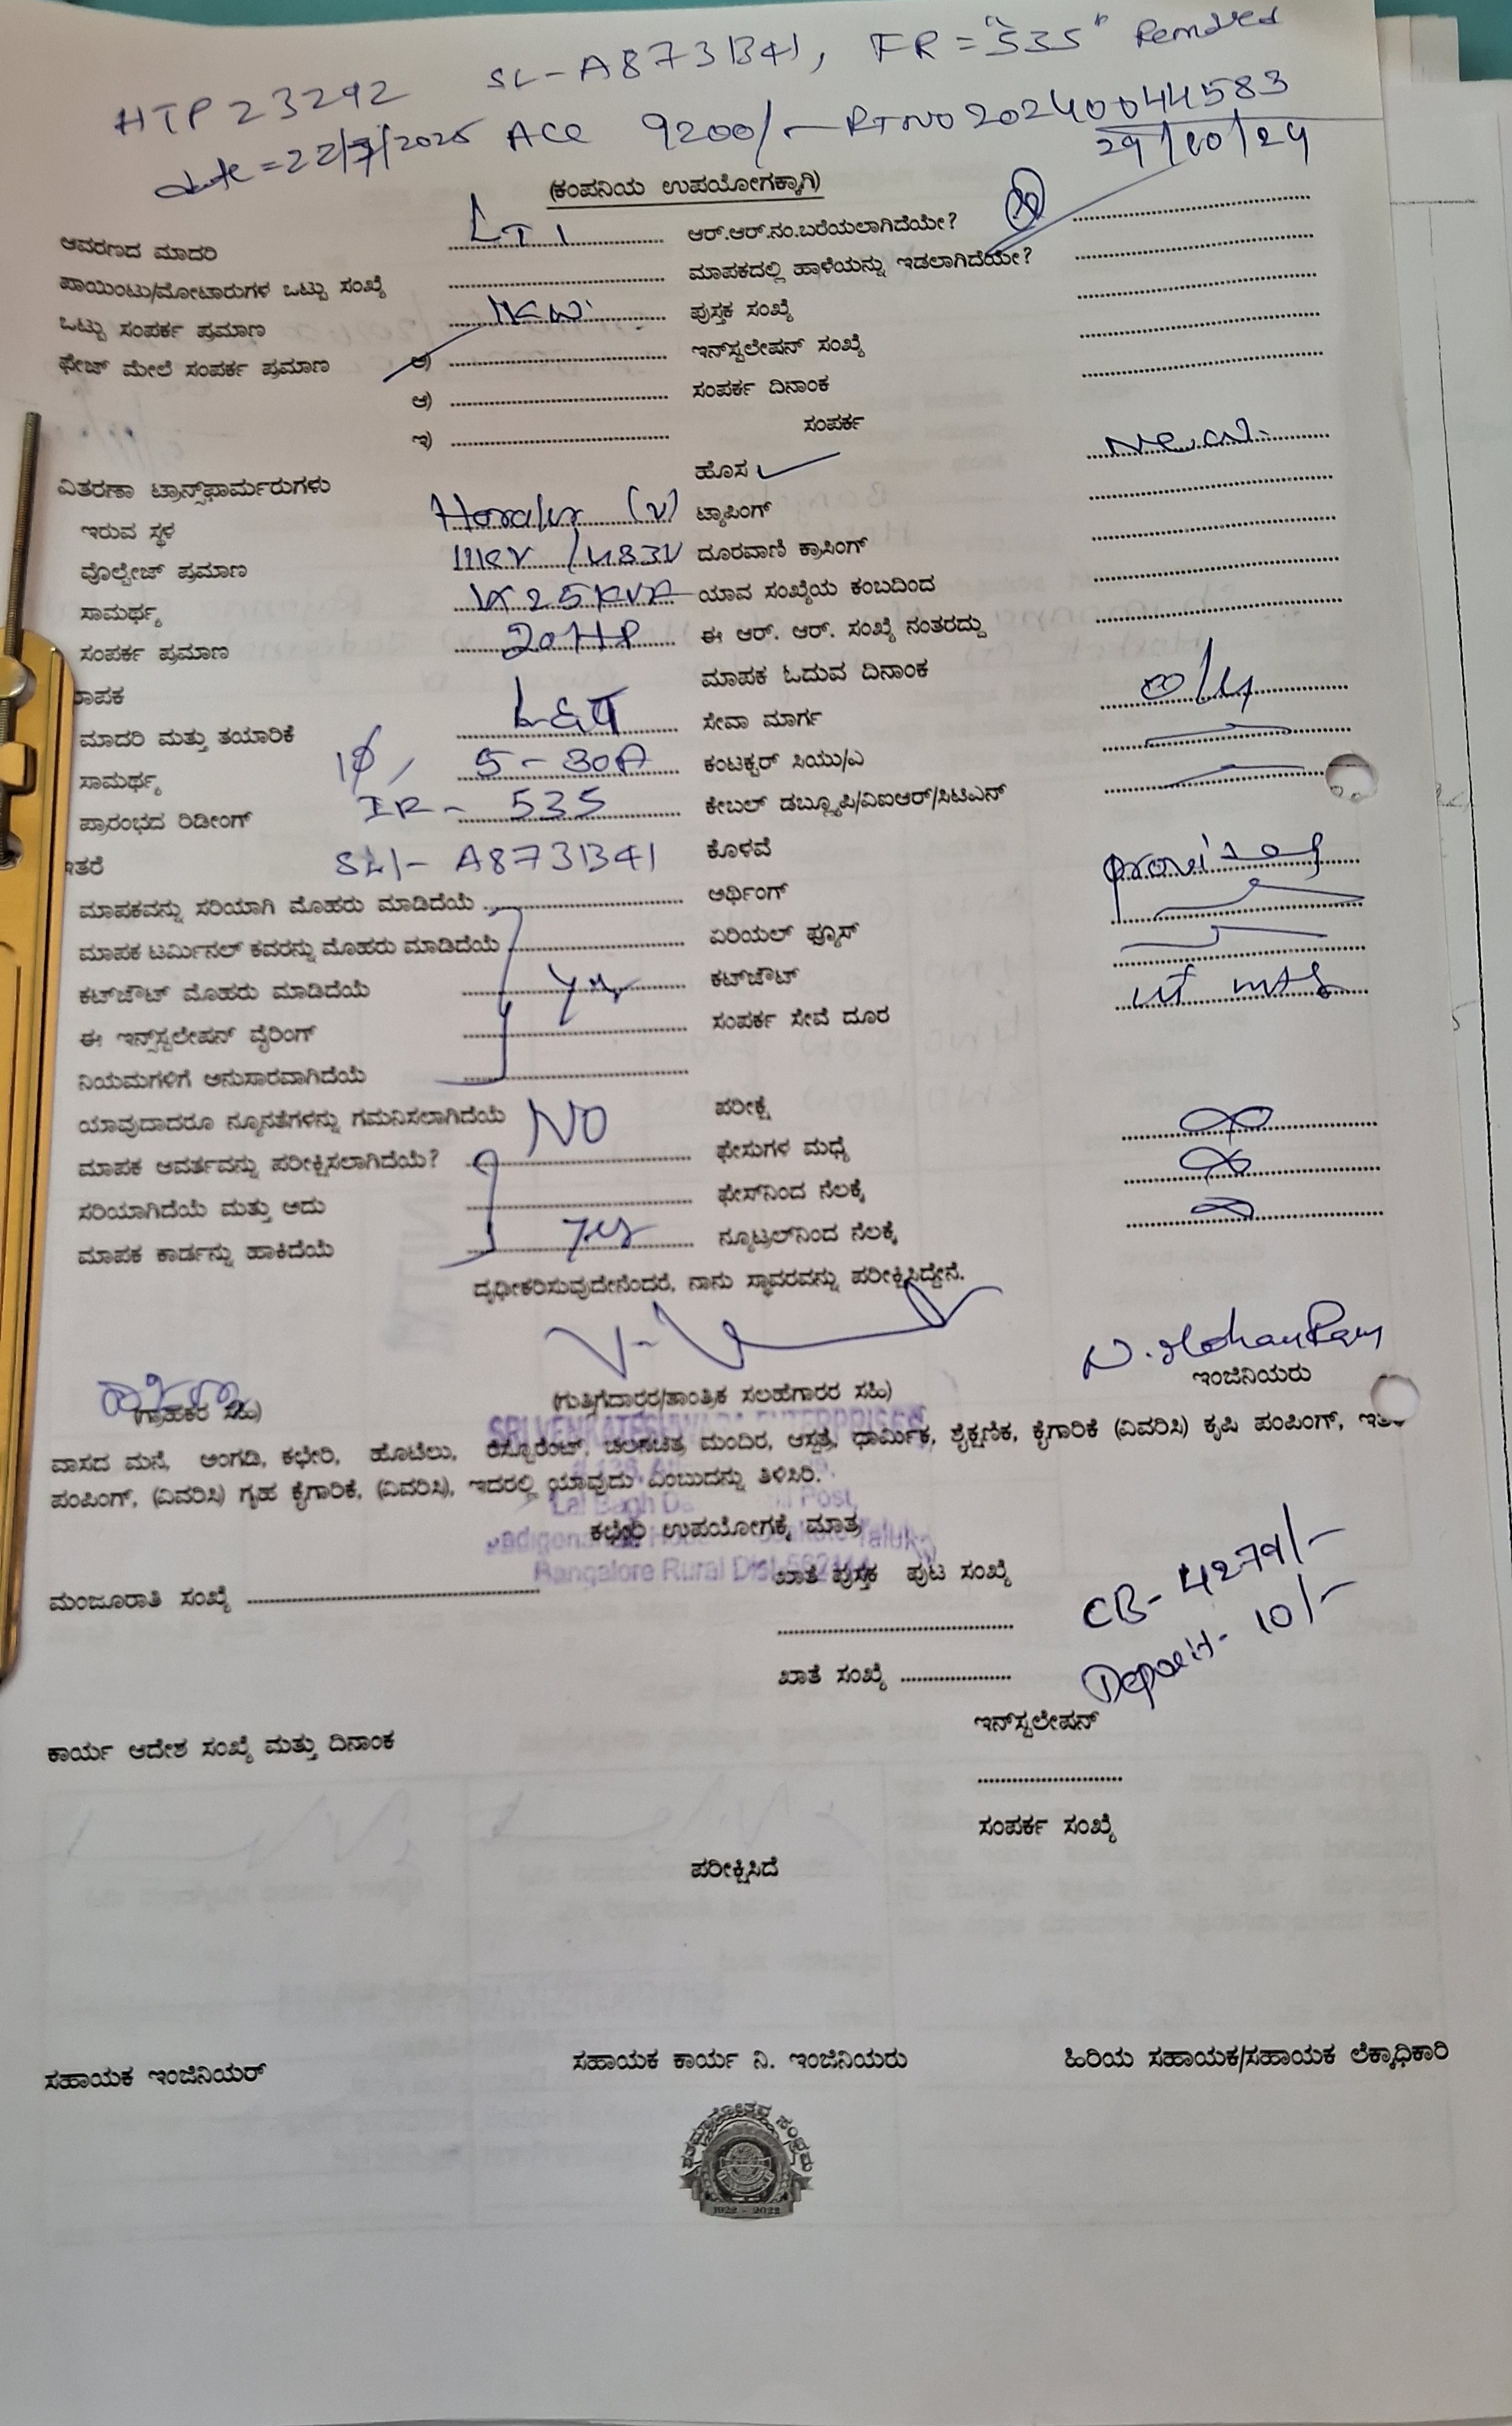 HTP 23292 SL-A8731341, FR = "535" Remarks
date = 22/7/2025 ACC 9200/- RTNO 20240044583
29/10/24
(ಕಂಪನಿಯ ಉಪಯೋಗಕ್ಕಾಗಿ)
ಆವರಣದ ಮಾದರಿ LT1 ಆರ್.ಆರ್.ನಂ.ಬರೆಯಲಾಗಿದೆಯೇ?
ಪಾಯಿಂಟು/ಮೋಟಾರುಗಳ ಒಟ್ಟು ಸಂಖ್ಯೆ ಮಾಪಕದಲ್ಲಿ ಹಾಳೆಯನ್ನು ಇಡಲಾಗಿದೆಯೇ?
ಒಟ್ಟು ಸಂಪರ್ಕ ಪ್ರಮಾಣ 1KW ಪುಸ್ತಕ ಸಂಖ್ಯೆ
ಫೇಜ್ ಮೇಲೆ ಸಂಪರ್ಕ ಪ್ರಮಾಣ ಅ) ಇನ್‌ಸ್ಟಲೇಷನ್ ಸಂಖ್ಯೆ
ಆ) ಸಂಪರ್ಕ ದಿನಾಂಕ
ಇ) ಸಂಪರ್ಕ
ವಿತರಣಾ ಟ್ರಾನ್ಸ್‌ಫಾರ್ಮರುಗಳು ಹೊಸ New
ಇರುವ ಸ್ಥಳ Horalur (V) ಟ್ಯಾಪಿಂಗ್
ವೊಲ್ಟೇಜ್ ಪ್ರಮಾಣ 11KV / 433V ದೂರವಾಣಿ ಕ್ರಾಸಿಂಗ್
ಸಾಮರ್ಥ್ಯ 1x25KVA ಯಾವ ಸಂಖ್ಯೆಯ ಕಂಬದಿಂದ
ಸಂಪರ್ಕ ಪ್ರಮಾಣ 20HP ಈ ಆರ್. ಆರ್. ಸಂಖ್ಯೆ ನಂತರದ್ದು
ಮಾಪಕ ಮಾಪಕ ಓದುವ ದಿನಾಂಕ
ಮಾದರಿ ಮತ್ತು ತಯಾರಿಕೆ L&T ಸೇವಾ ಮಾರ್ಗ o/H
ಸಾಮರ್ಥ್ಯ 1Ø, 5-30A ಕಂಟಕ್ಟರ್ ಸಿಯು/ಎ
ಪ್ರಾರಂಭದ ರಿಡೀಂಗ್ IR- 535 ಕೇಬಲ್ ಡಬ್ಲ್ಯೂಪಿ/ವಿಐಆರ್/ಸಿಟಿಎನ್
ಇತರೆ SL- A8731341 ಕೊಳವೆ
ಮಾಪಕವನ್ನು ಸರಿಯಾಗಿ ಮೊಹರು ಮಾಡಿದೆಯೆ ಅರ್ಥಿಂಗ್ provided
ಮಾಪಕ ಟರ್ಮಿನಲ್ ಕವರನ್ನು ಮೊಹರು ಮಾಡಿದೆಯೆ ಏರಿಯಲ್ ಫ್ಯೂಸ್
ಕಟ್‌ಔಟ್ ಮೊಹರು ಮಾಡಿದೆಯೆ Yes ಕಟ್‌ಔಟ್
ಈ ಇನ್ಸ್‌ಸ್ಟಲೇಷನ್ ವೈರಿಂಗ್ ಸಂಪರ್ಕ ಸೇವೆ ದೂರ mts
ನಿಯಮಗಳಿಗೆ ಅನುಸಾರವಾಗಿದೆಯೆ
ಯಾವುದಾದರೂ ನ್ಯೂನತೆಗಳನ್ನು ಗಮನಿಸಲಾಗಿದೆಯೆ NO ಪರೀಕ್ಷೆ
ಮಾಪಕ ಆವರ್ತವನ್ನು ಪರೀಕ್ಷಿಸಲಾಗಿದೆಯೆ? ಫೇಸುಗಳ ಮಧ್ಯೆ
ಸರಿಯಾಗಿದೆಯೆ ಮತ್ತು ಅದು ಫೇಸ್‌ನಿಂದ ನೆಲಕ್ಕೆ
ಮಾಪಕ ಕಾರ್ಡನ್ನು ಹಾಕಿದೆಯೆ Yes ನ್ಯೂಟ್ರಲ್‌ನಿಂದ ನೆಲಕ್ಕೆ
ದೃಢೀಕರಿಸುವುದೇನೆಂದರೆ, ನಾನು ಸ್ಥಾವರವನ್ನು ಪರೀಕ್ಷಿಸಿದ್ದೇನೆ.
N. Mohan Ram
(ಗ್ರಾಹಕರ ಸಹಿ) (ಗುತ್ತಿಗೆದಾರರ/ತಾಂತ್ರಿಕ ಸಲಹೆಗಾರರ ಸಹಿ) ಇಂಜಿನಿಯರು
SRI VENKATESHWARA ENTERPRISES
ವಾಸದ ಮನೆ, ಅಂಗಡಿ, ಕಛೇರಿ, ಹೊಟೆಲು, ರೆಸ್ಟೊರೆಂಟ್, ಚಲನಚಿತ್ರ ಮಂದಿರ, ಆಸ್ಪತ್ರೆ, ಧಾರ್ಮಿಕ, ಶೈಕ್ಷಣಿಕ, ಕೈಗಾರಿಕೆ (ವಿವರಿಸಿ) ಕೃಷಿ ಪಂಪಿಂಗ್, ಇತರ
ಪಂಪಿಂಗ್, (ವಿವರಿಸಿ) ಗೃಹ ಕೈಗಾರಿಕೆ, (ವಿವರಿಸಿ), ಇದರಲ್ಲಿ ಯಾವುದು ಎಂಬುದನ್ನು ತಿಳಿಸಿರಿ.
ಕಛೇರಿ ಉಪಯೋಗಕ್ಕೆ ಮಾತ್ರ
Bangalore Rural Dist
ಮಂಜೂರಾತಿ ಸಂಖ್ಯೆ ಖಾತೆ ಪುಸ್ತಕ ಪುಟ ಸಂಖ್ಯೆ
CB- 4279/-
ಖಾತೆ ಸಂಖ್ಯೆ Deposit- 10/-
ಇನ್‌ಸ್ಟಲೇಷನ್
ಕಾರ್ಯ ಆದೇಶ ಸಂಖ್ಯೆ ಮತ್ತು ದಿನಾಂಕ
ಸಂಪರ್ಕ ಸಂಖ್ಯೆ
ಪರೀಕ್ಷಿಸಿದೆ
ಸಹಾಯಕ ಇಂಜಿನಿಯರ್ ಸಹಾಯಕ ಕಾರ್ಯ ನಿ. ಇಂಜಿನಿಯರು ಹಿರಿಯ ಸಹಾಯಕ/ಸಹಾಯಕ ಲೆಕ್ಕಾಧಿಕಾರಿ
ಶತಮಾನೋತ್ಸವ ಸಂಭ್ರಮ
1922 - 2022